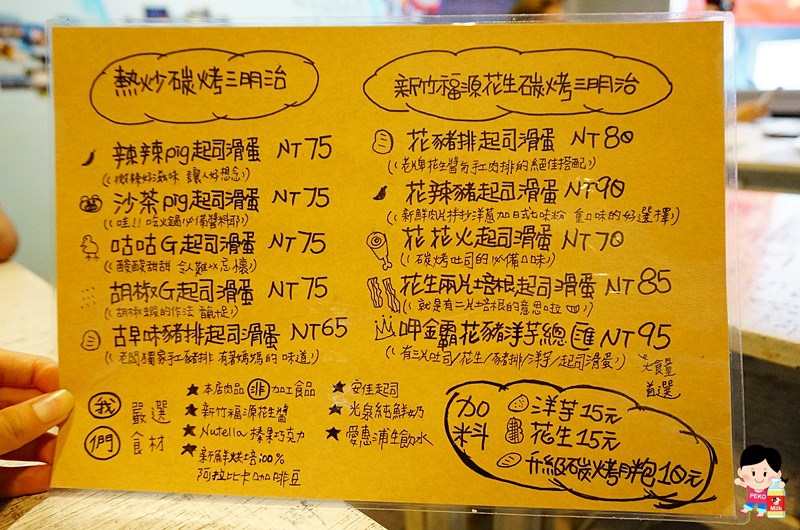 熱炒碳烤三明治
辣辣pig起司滑蛋 NT75
(微辣好滋味 讓人好想念)
沙茶pig起司滑蛋 NT75
(哇!! 吃火鍋必備醬料耶)
咕咕G起司滑蛋 NT75
(酸酸甜甜 令人難以忘懷)
胡椒G起司滑蛋 NT75
(胡椒蝦的作法 鹹足)
古早味豬排起司滑蛋 NT65
(老闆獨家手工豬排 有著媽媽的味道)
新竹福源花生碳烤三明治
花豬排起司滑蛋 NT80
(老牌花生醬与手工肉排的絕佳搭配)
花辣豬起司滑蛋 NT90
(新鮮肉片拌炒洋蔥加日式七味粉 重口味的好選擇)
花花火起司滑蛋 NT70
(碳烤吐司的必備口味)
花生兩片培根起司滑蛋 NT85
(就是有二片培根的意思啦)
呷金霸花豬洋芋總匯 NT95
(有三片吐司/花生/豬排/洋芋/起司滑蛋)
大食量
首選
我們
嚴選
食材
★本店肉品 非 加工食品
★新竹福源花生醬
★Nutella 榛果巧克力
★新鮮烘培100%
阿拉比卡咖啡豆
★安佳起司
★光泉純鮮奶
★愛惠浦生飲水
加料
洋芋15元
花生15元
升級碳烤胖包10元
PEKO
Milk